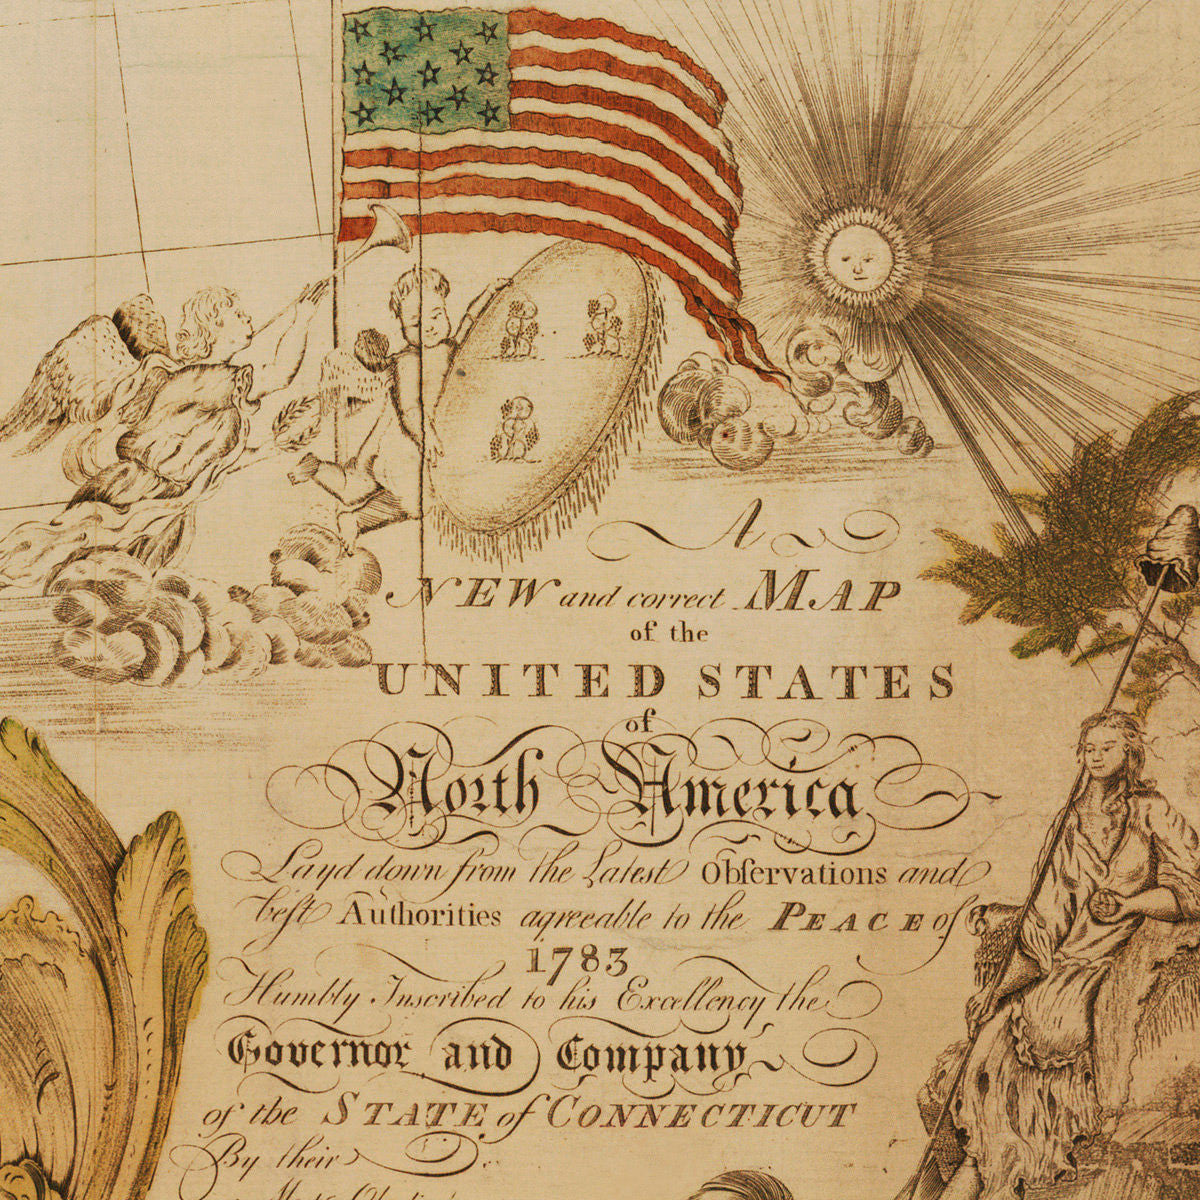 A
NEW and correct MAP
of the
UNITED STATES
of
North America
Layd down from the Latest Obſervations and
beſt Authorities agreeable to the PEACE of
1783
Humbly Inscribed to his Excellency the
Governor and Company
of the STATE of CONNECTICUT
By their